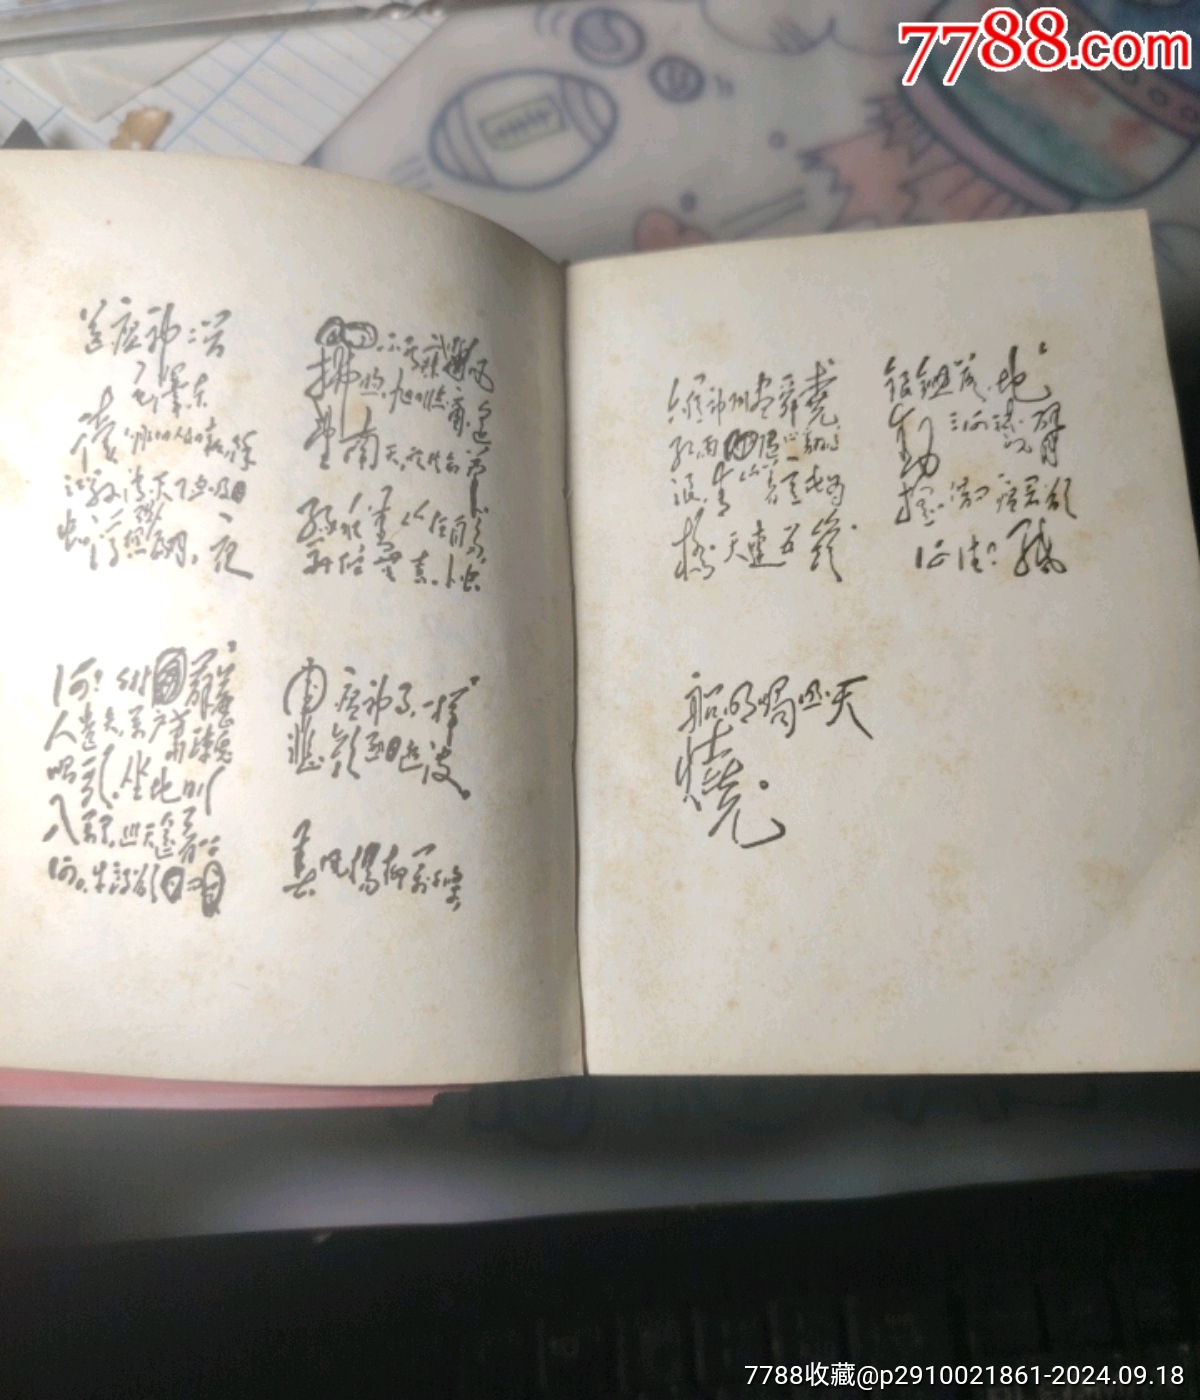 7788.com
送瘟神二首
毛澤东
虫,浮想联翩,夜
不能寐,微风
拂晓,旭日临窗,遥
望南天,欣然命笔
绿水青山枉自多,
华佗无奈小虫
何!千村薜苈
人遗矢,万户萧疏鬼
唱歌.坐地日行
八万里,巡天遥看一千
河.牛郎欲问
瘟神事,一样
悲欢逐逝波.
春风杨柳万千条
六亿神州尽舜尧
红雨随心翻作
浪,青山着意化为
桥.天连五岭
银锄落,地
动三河铁臂
摇.借问瘟君欲
何往?纸
船明烛照天
烧.
7788收藏@p2910021861-2024.09.18